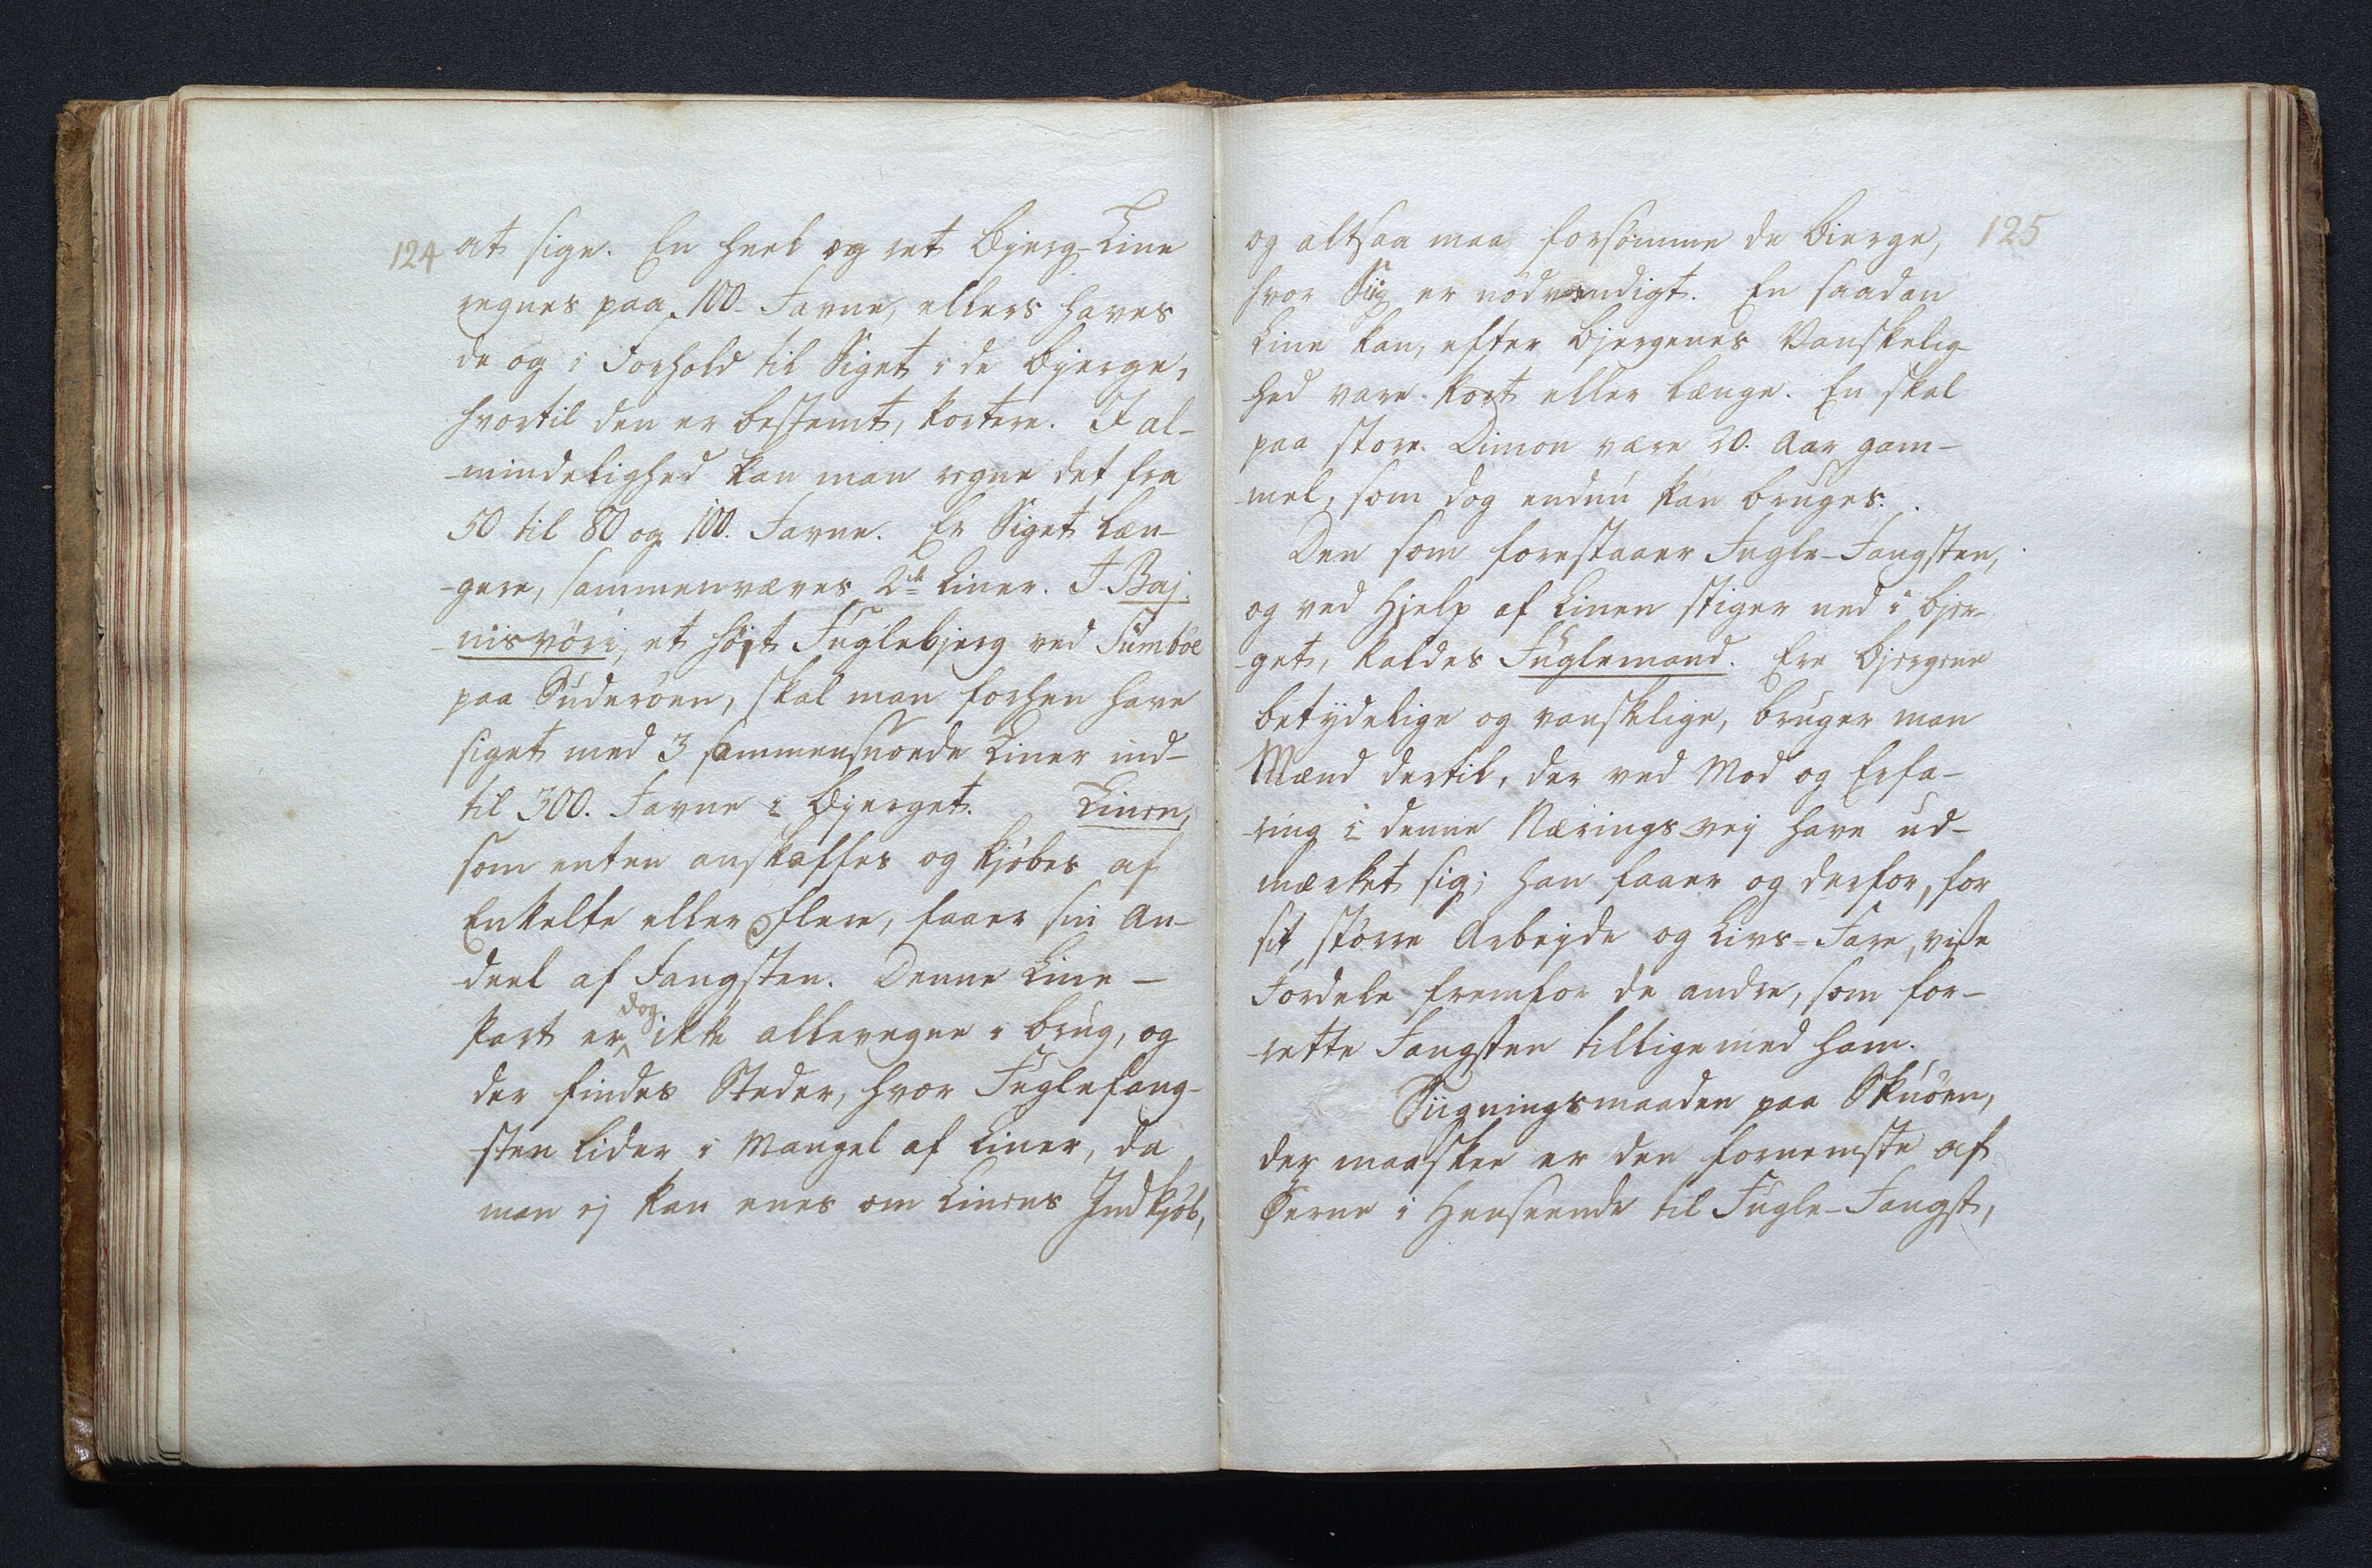 124
at sige. En heel og ret Bjerg-Line
regnes paa 100. Favne, ellers haves
de og i Forhold til Siget i de Bjerge,
hvortil den er bestemt, kortere. I al-
-mindelighed kan man regne det fra
50 til 80 og 100. Favne. Er Siget læn-
-gere, sammenvæves 2de Liner. I Baj-
-nisvöri, et höjt Fuglebjerg ved Sumböe
paa Suderöen, skal man forhen have
siget med 3 sammensnoede Liner ind-
til 300. Favne i Bjerget. Linen,
som enten anskaffes og kjöbes af
Enkelte eller Flere, faaer sin An-
deel af Fangsten. Denne Line-
Part er dog ikke allevegne i brug, og
der findes Steder, hvor Fuglefang-
-sten lider i Mangel af Liner, da
man ej kan enes om Linens Indkjöb,
125
og altsaa maa forsömme de Bierge,
hvor Siig er nödvendigt. En saadan
Line kan, efter Bjergenes Vanskelig-
hed vare kort eller længe. En skal
paa store Dimon være 20. Aar gam-
-mel, som dog endnu kan bruges.
Den som forestaaer Fugle-Fangsten,
og ved Hjelp af Linen stiger ned i Bjer-
-get, kaldes Fuglemand. Ere Bjergene
betydelige og vanskelige, bruger man
Mænd dertil, der ved Mod og Erfa-
-ring i denne Næringsvej have ud-
mærket sig; han faaer og derfor, for
sit större Arbejde og Livs-Fare, visse
Fordele fremfor de andre, som for-
-rette Fangsten tilligemed ham.
Siigningsmaaden paa Skuöen,
der maaskee er den fornemste af
Öerne i Henseende til Fugle-Fangst,